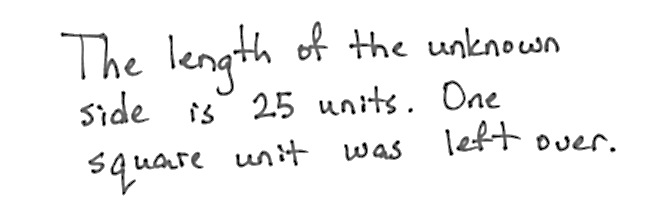 The length of the unknown
side is 25 units. One
square unit was left over.